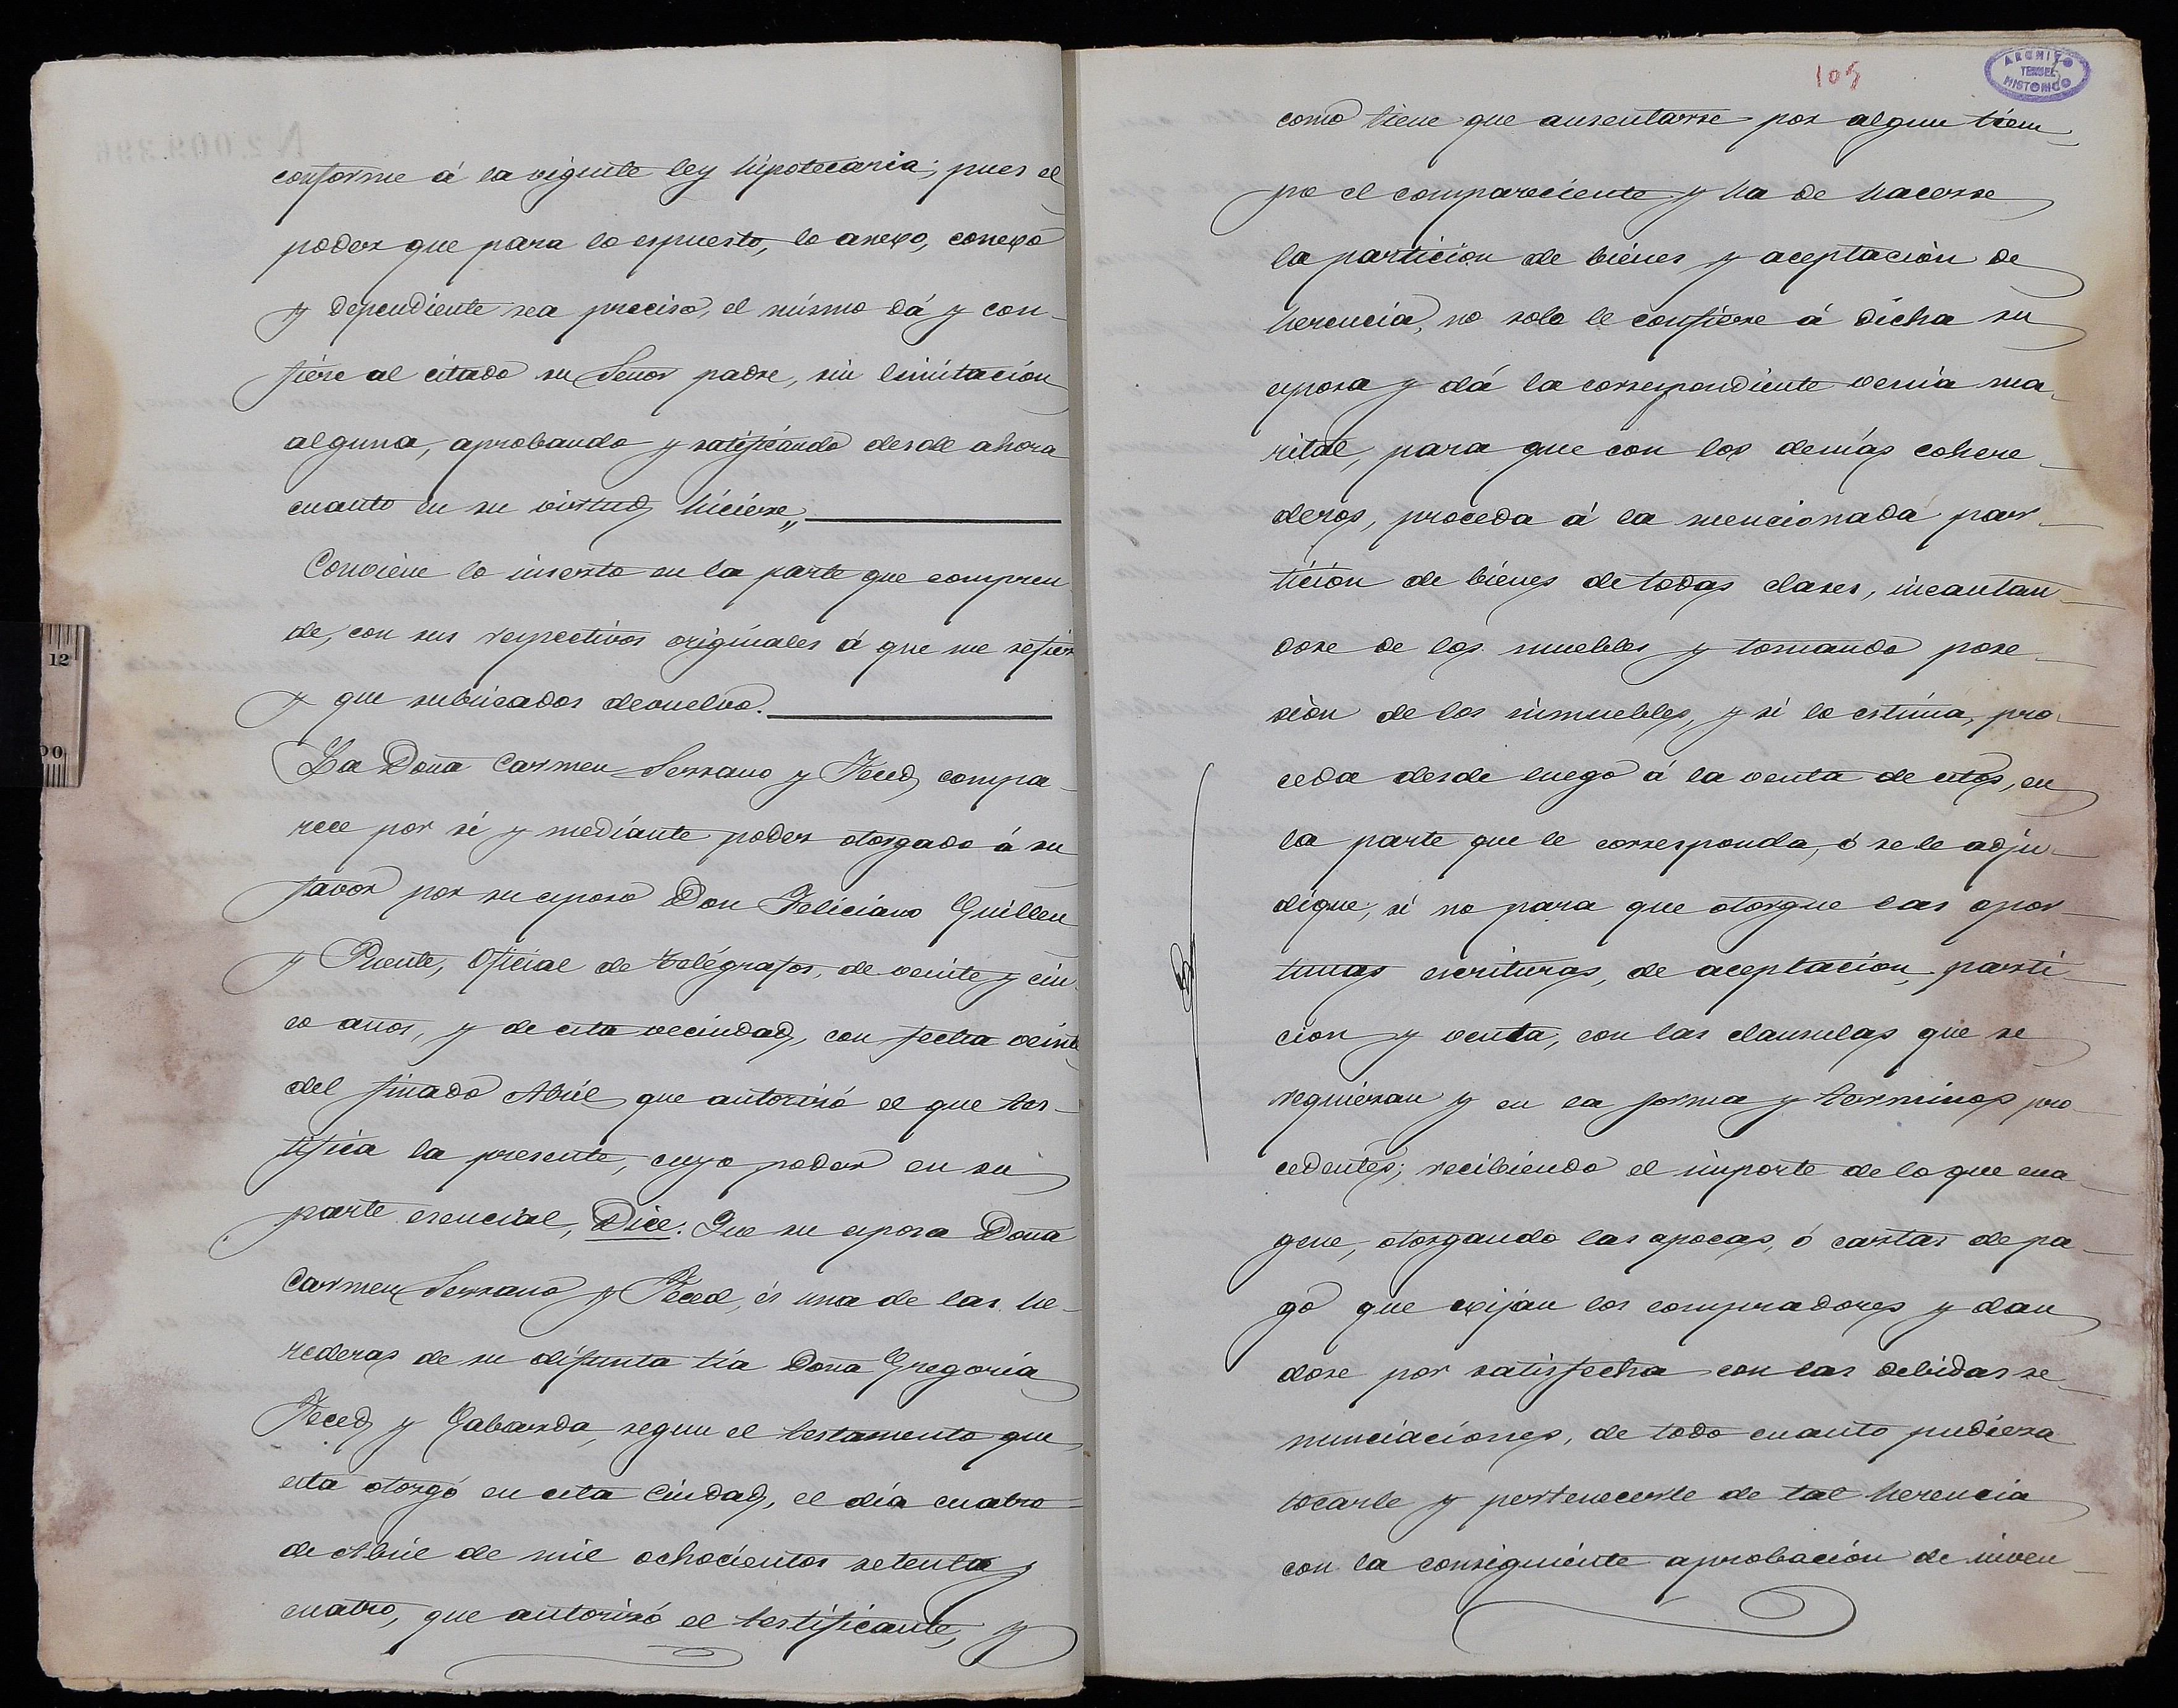 conforme á la vigente ley hipotecaria; pues el
poder que para lo espuesto, lo anexo, conexo
y dependiente sea preciso, el mismo dá y con-
fiere al citado su Señor padre, sin limitación
alguna, aprobando y ratificando desde ahora
cuanto en su virtud hiciere„
Conviene lo inserto en la parte que compren
de, con sus respectivos originales á que me refiero
y que rubricados devuelvo.
La Doña Carmen Serrano y Feced, compa-
rece por sí y mediante poder otorgado á su
favor por su esposo Don Feliciano Guillen
y Puente, Oficial de telégrafos, de veinte y cin
co años, y de esta vecindad, con fecha veinte
del finado Abril que autorizó el que tes-
tifica la presente, cuyo poder en su
parte esencial, Dice: Que su esposa Doña
Carmen Serrano y Feced, és una de las he-
rederas de su difunta tía Doña Gregoria
Feced y Gabarda, segun el testamento que
esta otorgó en esta Ciudad, el día cuatro
de Abril de mil ochocientos setenta y
cuatro, que autorizó el testificante, y
105
ARCHIVO
HISTORICO
TERUEL
como tiene que ausentarse por algun tiem-
po el compareciente y ha de hacerse
la particion de bienes y aceptación de
herencia, no solo le confiere á dicha su
esposa y dá la correspondiente venia ma-
rital, para que con los demás cohere-
deros, proceda á la mencionada par-
tición de bienes de todas clases, incautan-
dose de los muebles y tomando pose-
sión de los inmuebles, y si lo estima, pro-
ceda desde luego á la venta de estos, en
la parte que le corresponda, ó se le adju-
dique, si no para que otorgue las opor-
tunas escrituras, de aceptacion, parti-
cion y venta, con las clausulas que se
requieran y en la forma y terminos pro-
cedentes; recibiendo el importe de lo que ena-
gene, otorgando las apocas, ó cartas de pa-
go que exijan los compradores y dan
dose por satisfecha con las debidas re-
nunciaciones, de todo cuanto pudiera
tocarle y pertenecerle de tal herencia
con la consiguiente aprobación de inven-